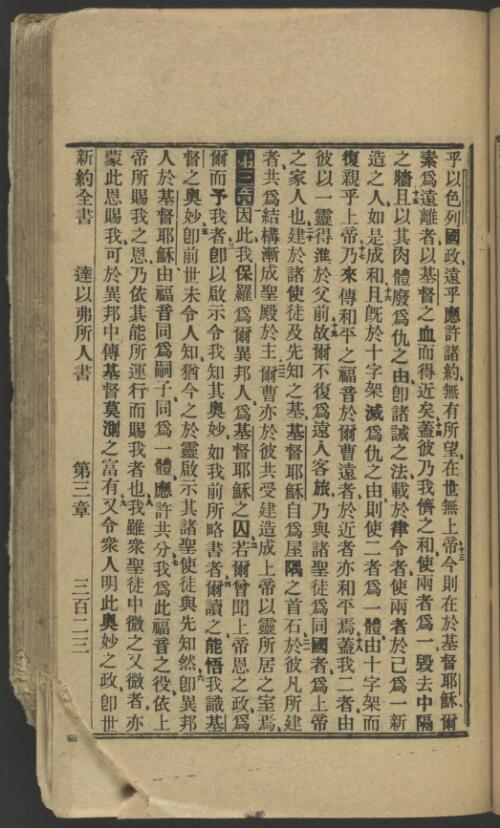 乎以色列國政、遠乎應許諸約、無有所望、在世無上帝、十三今則在於基督耶穌、爾
素爲遠離者、以基督之血而得近矣、十四蓋彼乃我儕之和、使兩者爲一、毀去中隔
之牆、十五且以其肉體廢爲仇之由、卽諸誡之法載於律令者、使兩者於己爲一新
造之人、如是成和、十六且旣於十字架滅爲仇之由、則使二者爲一體、由十字架而
復親乎上帝、十七乃來傳和平之福音於爾曹遠者、於近者亦和平焉、十八蓋我二者由
彼以一靈得進於父前、十九故爾不復爲遠人客旅、乃與諸聖徒爲同國者、爲上帝
之家人也、二十建於諸使徒及先知之基、基督耶穌自爲屋隅之首石、二一於彼凡所建
者、共爲結構、漸成聖殿於主、二二爾曹亦於彼共受建造、成上帝以靈所居之室焉、
第三章因此我保羅爲爾異邦人、爲基督耶穌之囚、二若爾曾聞上帝恩之政、爲
爾而予我者、三卽以啟示令我知其奧妙、如我前所略書者、四爾讀之、能悟我識基
督之奧妙、五卽前世未令人知、猶今之於靈啟示其諸聖使徒與先知然、六卽異邦
人於基督耶穌、由福音同爲嗣子、同爲一體、應許共分、七我爲此福音之役、依上
帝所賜我之恩、乃依其能所運行而賜我者也、八我雖衆聖徒中微之又微者、亦
蒙此恩賜我、可於異邦中傳基督莫測之富有、九又令衆人明此奧妙之政、卽世
新約全書　達以弗所人書　第三章　三百二三